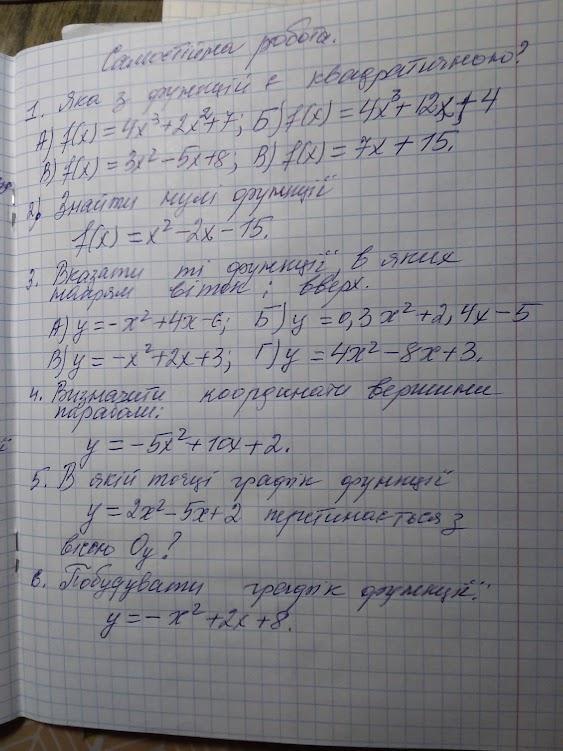 Самостійна робота.
1. Яка з функцій є квадратичною?
А) f(x) = 4x³+2x²+7; Б) f(x) = 4x³+12x+4
В) f(x) = 3x²-5x+8; В) f(x) = 7x+15.
2) Знайти нулі функції
f(x) = x²-2x-15.
3. Вказати ті функції, в яких
напрям віток і вверх.
А) y = -x²+4x-6; Б) y = 0,3x²+2,4x-5
В) y = -x²+2x+3; Г) y = 4x²-8x+3.
4. Визначити координати вершини
параболи:
y = -5x²+10x+2.
5. В якій точці графік функції
y = 2x²-5x+2 перетинається з
віссю Oy?
6. Побудувати графік функції:
y = -x²+2x+8.